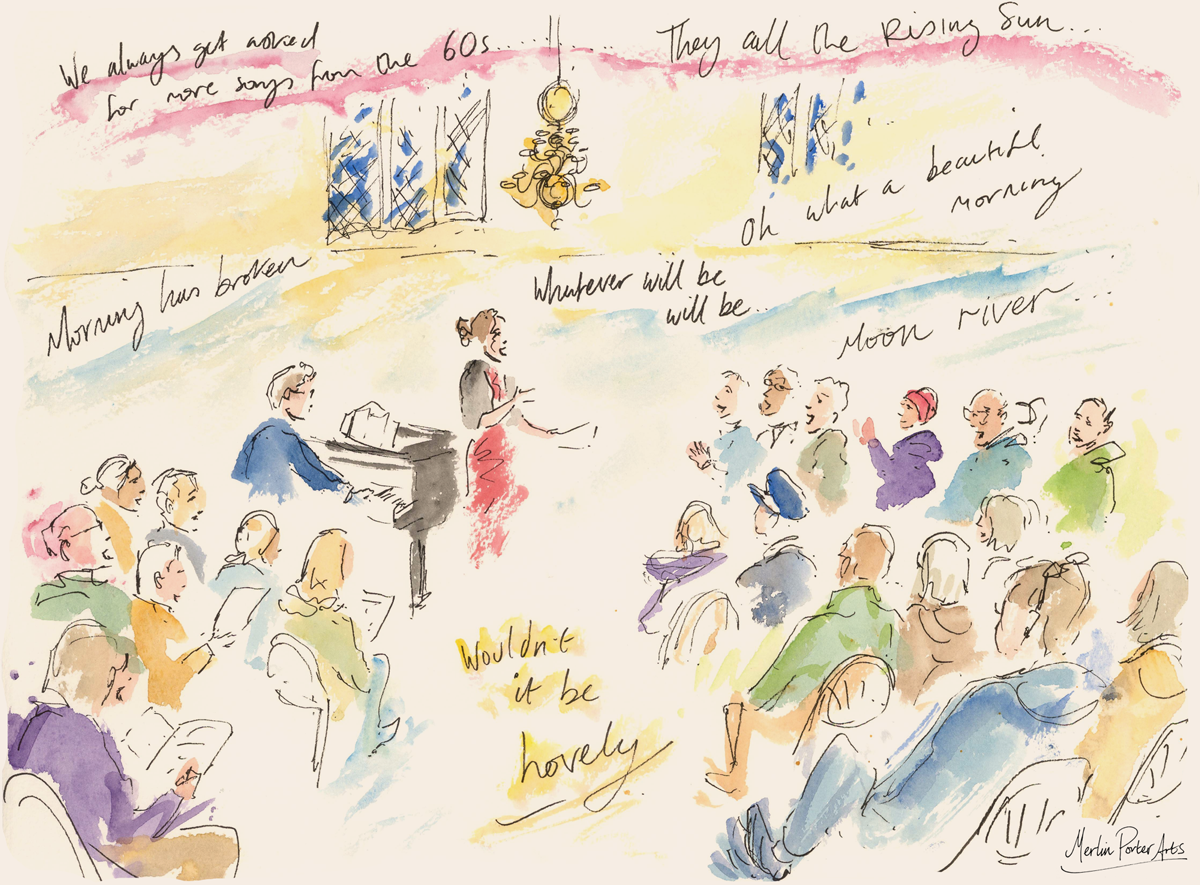 We always get asked
for more songs from the 60s.....
They call the Rising Sun...
Oh what a beautiful
morning
Morning has broken
Whatever will be
will be...
Moon river...
Wouldn't
it be
lovely
Merlin Porter Arts